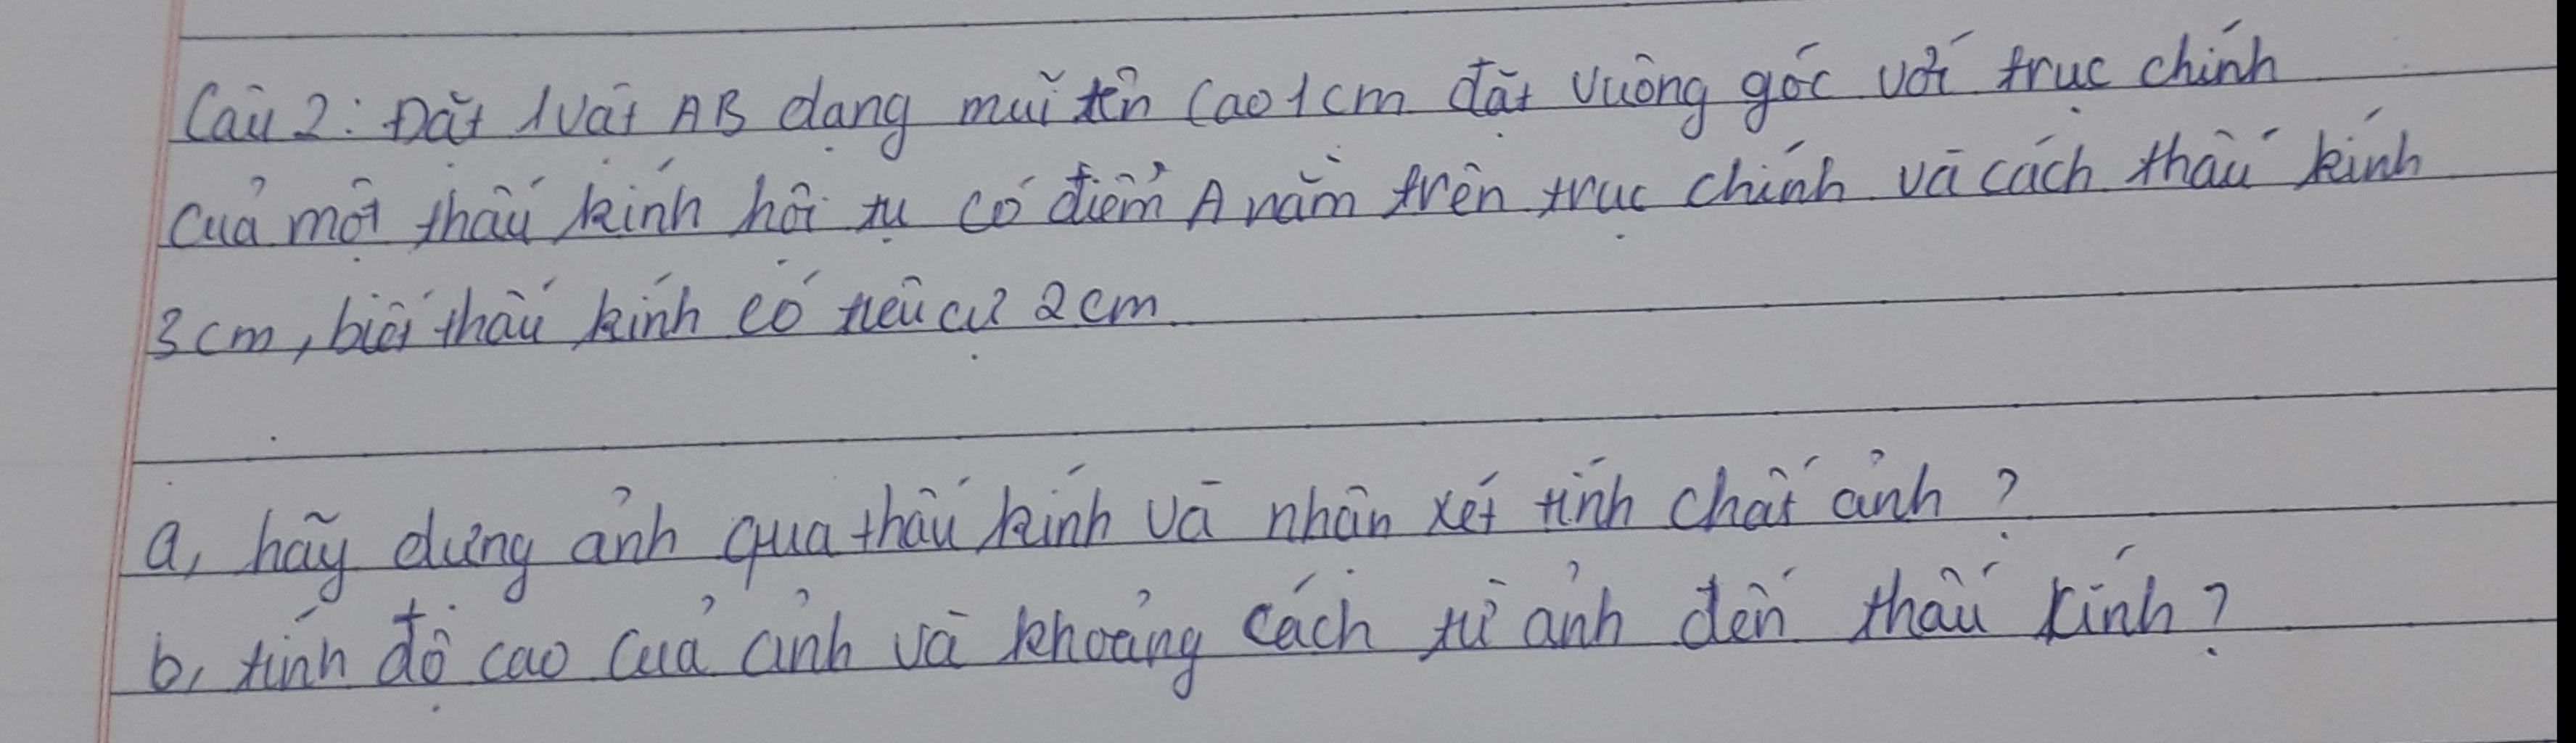 Câu 2: Đặt 1 vật AB dạng mũi tên cao 1cm đặt vuông góc với trục chính
của một thấu kính hội tụ có điểm A nằm trên trục chính và cách thấu kính
3cm, biết thấu kính có tiêu cự 2cm
a, hãy dựng ảnh qua thấu kính và nhận xét tính chất ảnh?
b, tính độ cao của ảnh và khoảng cách từ ảnh đến thấu kính?